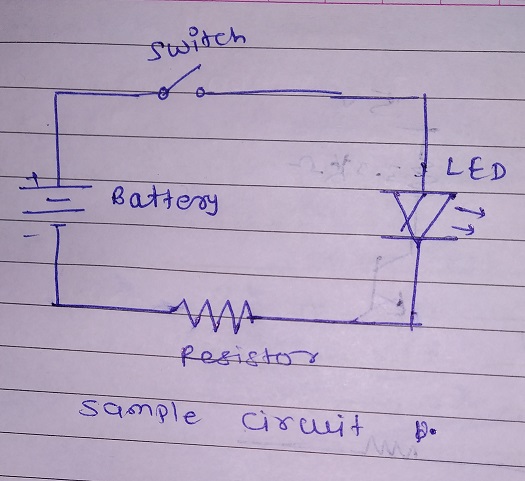 Switch
LED
+
Battery
-
Resistor
Sample Circuit